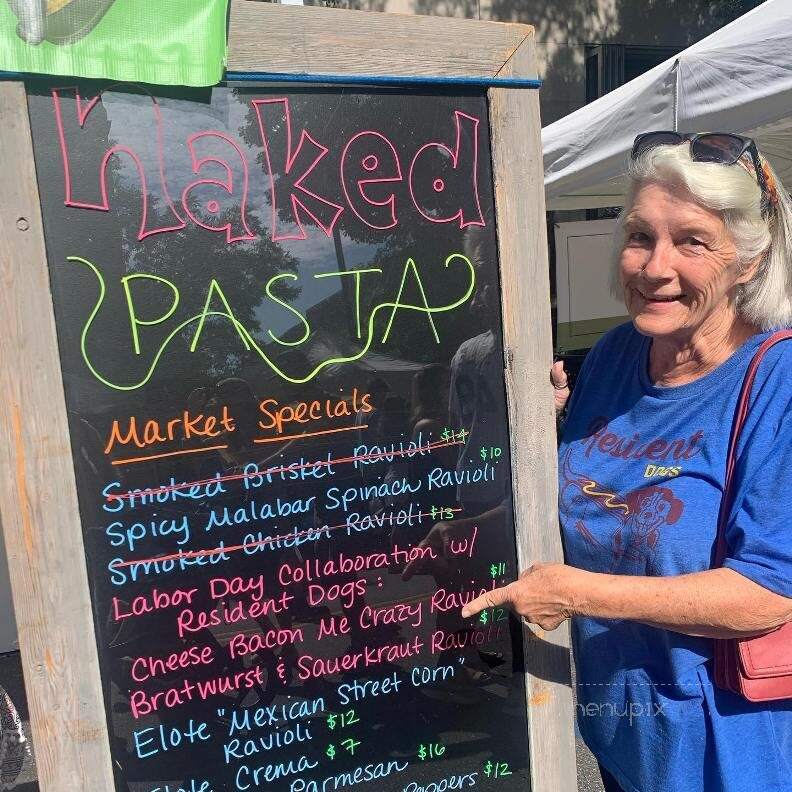 naked
PASTA
Market Specials
Smoked Brisket Ravioli $14
Spicy Malabar Spinach Ravioli $10
Smoked Chicken Ravioli $13
Labor Day Collaboration w/
Resident Dogs:
Cheese Bacon Me Crazy Ravioli $11
Bratwurst & Sauerkraut Ravioli $12
Elote "Mexican Street Corn"
Ravioli $12
Crema $7
Parmesan $16
Poppers $12
Resident
DOGS
menupix